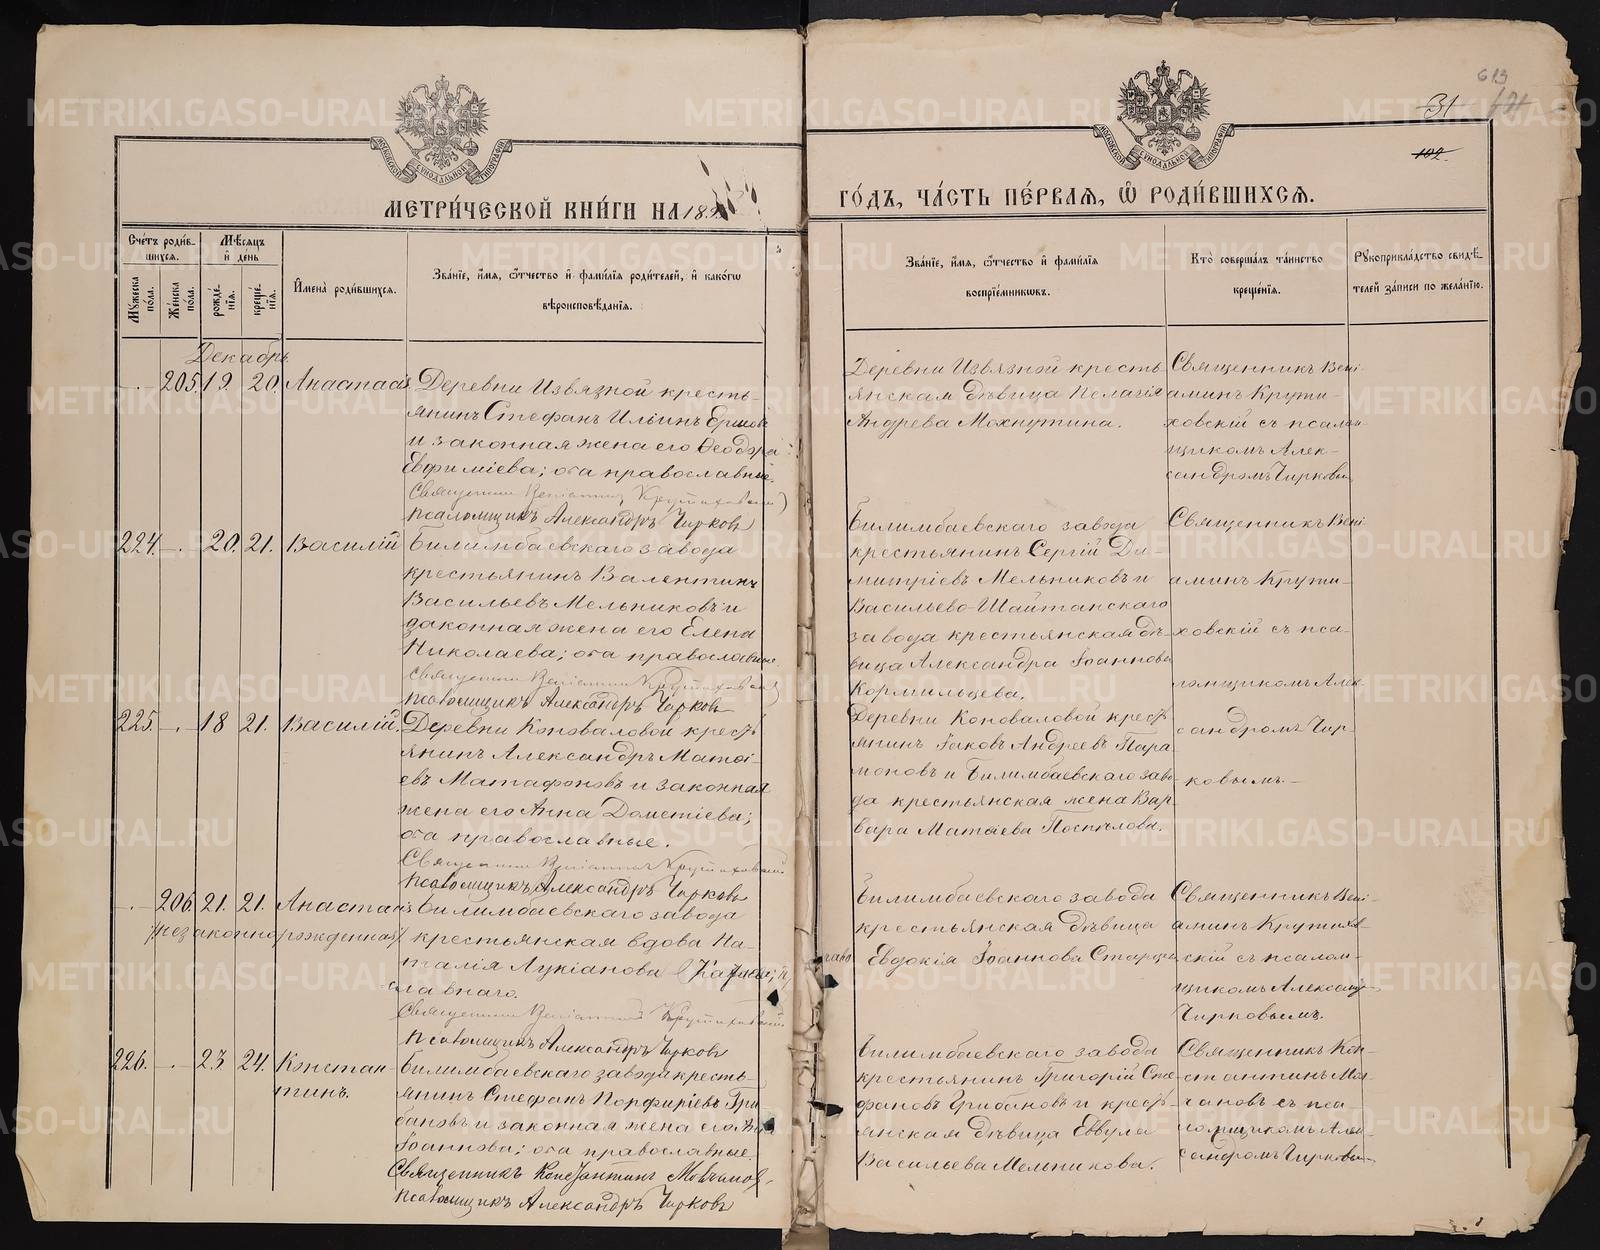 613
31
102
МЕТРИ́ЧЕСКОЙ КНИ́ГИ НА 189
ГО́ДЪ, ЧА́СТЬ ПЕ́РВАЯ, Ѽ РОДИ́ВШИХСЯ.
Сче́тъ роди́в-
шихся.
Мѣ́сяцъ
и҆ день
Мꙋжеска
по́ла.
Же́нска
по́ла.
рожде́-
нїя.
креще́-
нїя.
И҆мена̀ роди́вшихся.
Зва́нїе, и҆́мя, ѻ҆́тчество и҆ фами́лїя роди́телей, и҆ како́гѡ
вѣроисповѣ́данїя.
Зва́нїе, и҆́мя, ѻ҆́тчество и҆ фами́лїя
воспрїе́мникѡвъ.
Кто̀ соверша́лъ та́инство
креще́нїя.
Рꙋкоприкла́дство свидѣ́-
телей за́писи по жела́нїю.
Декабрь
205. 19. 20. Анастасія
Деревни Извязной кресть-
янинъ Стефанъ Ильинъ
и законная жена его Ѳеодора
Евфиміева; оба православные.
Священникъ Веніаминъ Крутиховскій
Псаломщикъ Александръ Чирковъ
Деревни Извязной кресть-
янская дѣвица Пелагія
Андреева Мохнутина.
Священникъ Вені-
аминъ Крути-
ховскій съ псалом-
щикомъ Алек-
сандромъ Чирковымъ
224. - 20. 21. Василій
Билимбаевскаго завода
крестьянинъ Валентинъ
Васильевъ Мельниковъ и
законная жена его Елена
Николаева; оба православные
Священникъ Веніаминъ Крутиховскій
Псаломщикъ Александръ Чирковъ
Билимбаевскаго завода
крестьянинъ Сергій Ди-
митріевъ Мельниковъ и
Васильево-Шайтанскаго
завода крестьянская дѣ-
вица Александра Іоаннова
Кормильцева.
Священникъ Вені-
аминъ Крути-
ховскій съ пса-
ломщикомъ Алек-
сандромъ Чир-
ковымъ.-
225. - 18 21. Василій.
Деревни Коноваловой кресть-
янинъ Александръ Матѳі-
евъ Матафоновъ и законная
жена его Анна Дометіева;
оба православные.
Священникъ Веніаминъ Крутиховскій
Псаломщикъ Александръ Чирковъ
Деревни Коноваловой кресть-
янинъ Іаковъ Андреевъ Пара-
моновъ и Билимбаевскаго заво-
да крестьянская жена Вар-
вара Матѳіева Поспѣлова.
- 206. 21. 21. Анастасія
/незаконнорожденная/
Билимбаевскаго завода
крестьянская вдова На-
талія Лукіанова
славнаго.
Священникъ Веніаминъ Крутиховскій
Псаломщикъ Александръ Чирковъ
Билимбаевскаго завода
крестьянская дѣвица
Евдокія Іоаннова
Священникъ Вені-
аминъ Крутихов-
скій съ псалом-
щикомъ Александр-
Чирковымъ.
226. - 23 24. Констан-
тинъ.
Билимбаевскаго завода кресть-
янинъ Стефанъ Порфиріевъ Гри-
бановъ и законная жена его
Іоаннова; оба православные
Священникъ Константинъ
Псаломщикъ Александръ Чирковъ
Билимбаевскаго завода
крестьянинъ Григорій Сте-
фановъ Грибановъ и кресть-
янская дѣвица Еввула
Васильева Мельникова.
Священникъ Кон-
стантинъ
съ пса-
ломщикомъ Алек-
сандромъ Чирковы-
METRIKI.GASO-URAL.RU